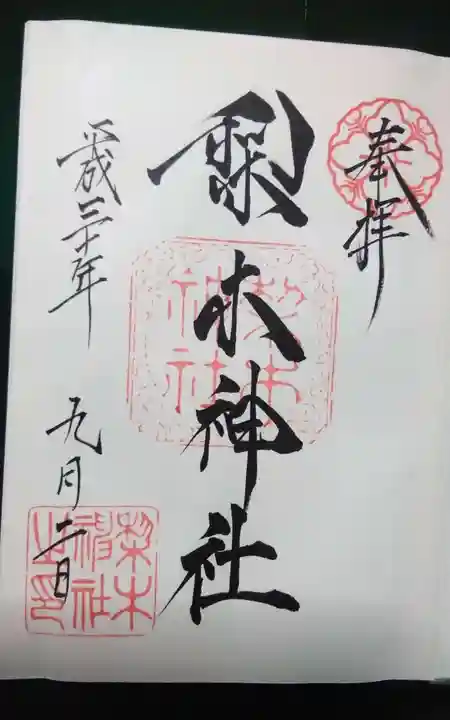 奉拝
梨木神社
梨木
神社
平成三十年
九月二日
梨木
神社
之印